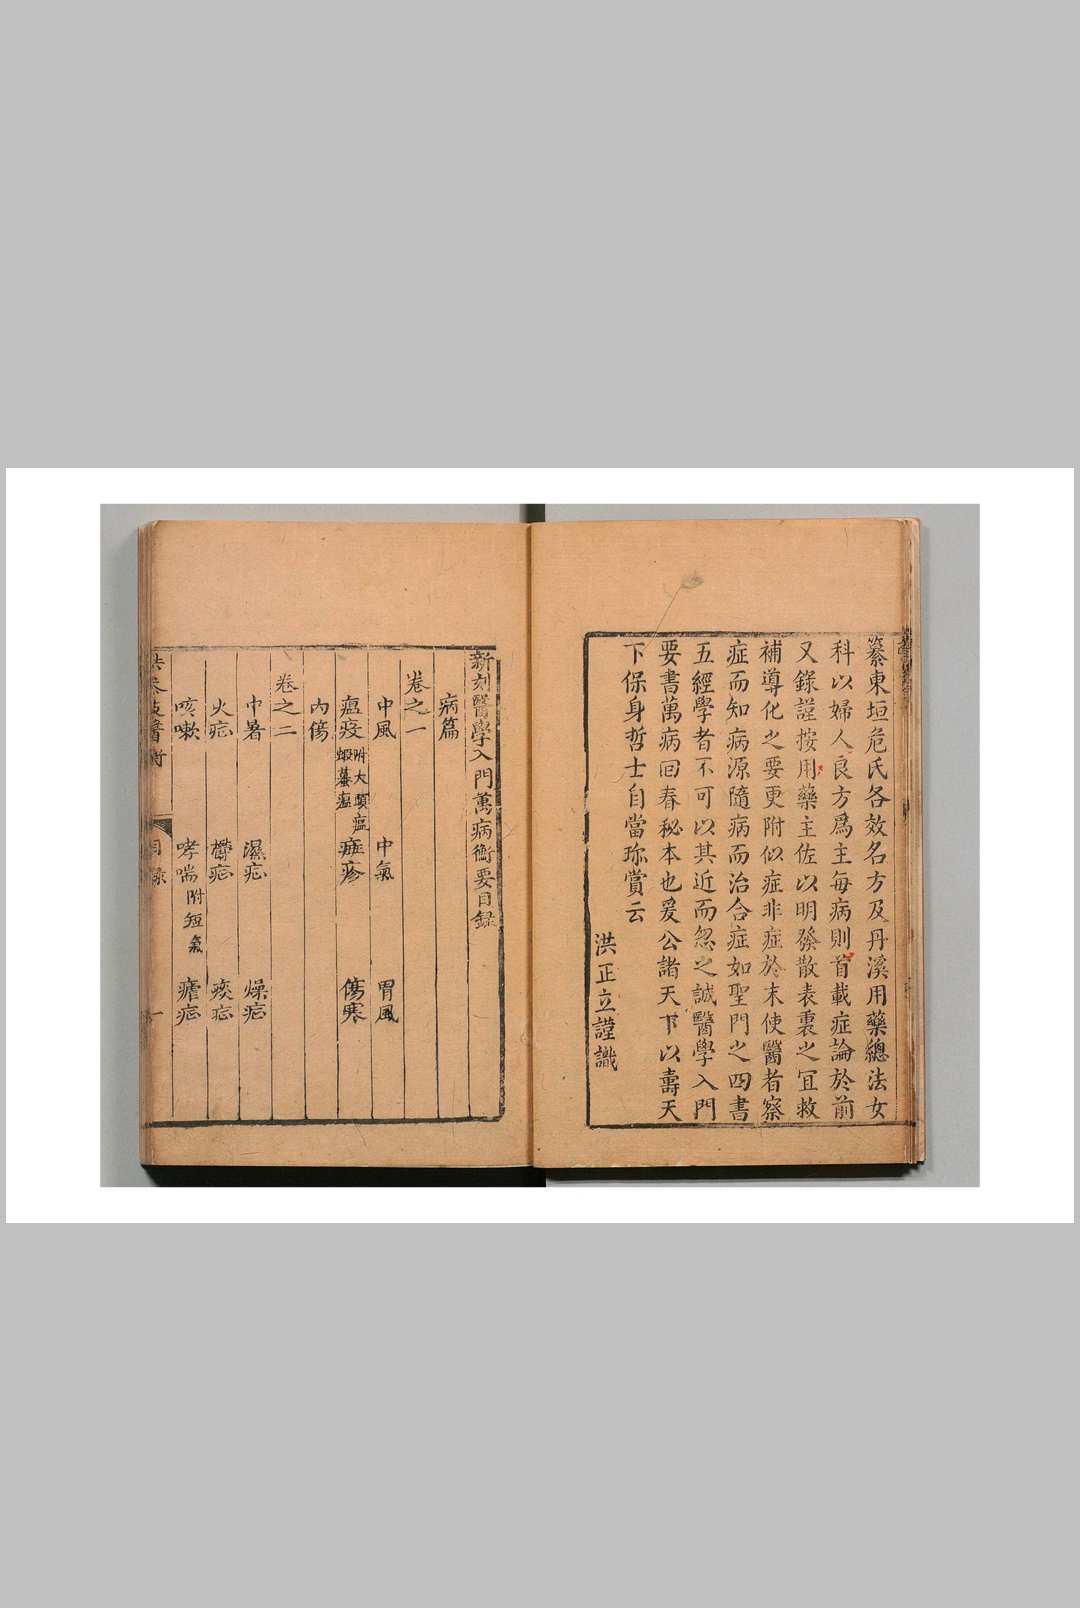 纂東垣危氏各效名方及丹溪用藥總法女
科以婦人良方爲主每病則首載症論於前
又錄謹按用藥主佐以明發散表裏之宜救
補導化之要更附似症非症於末使醫者察
症而知病源隨病而治合症如聖門之四書
五經學者不可以其近而忽之誠醫學入門
要書萬病回春秘本也爰公諸天下以壽天
下保身哲士自當珎賞云
洪正立謹識
新刻醫學入門萬病衡要目録
病篇
卷之一
中風 中氣 胃風
瘟疫附大頭瘟蝦蟇瘟 痖疹 傷寒
内傷
卷之二
中暑 濕症 燥症
火症 欝症 痰症
咳嗽 哮喘附短氣 瘧症
目錄 一